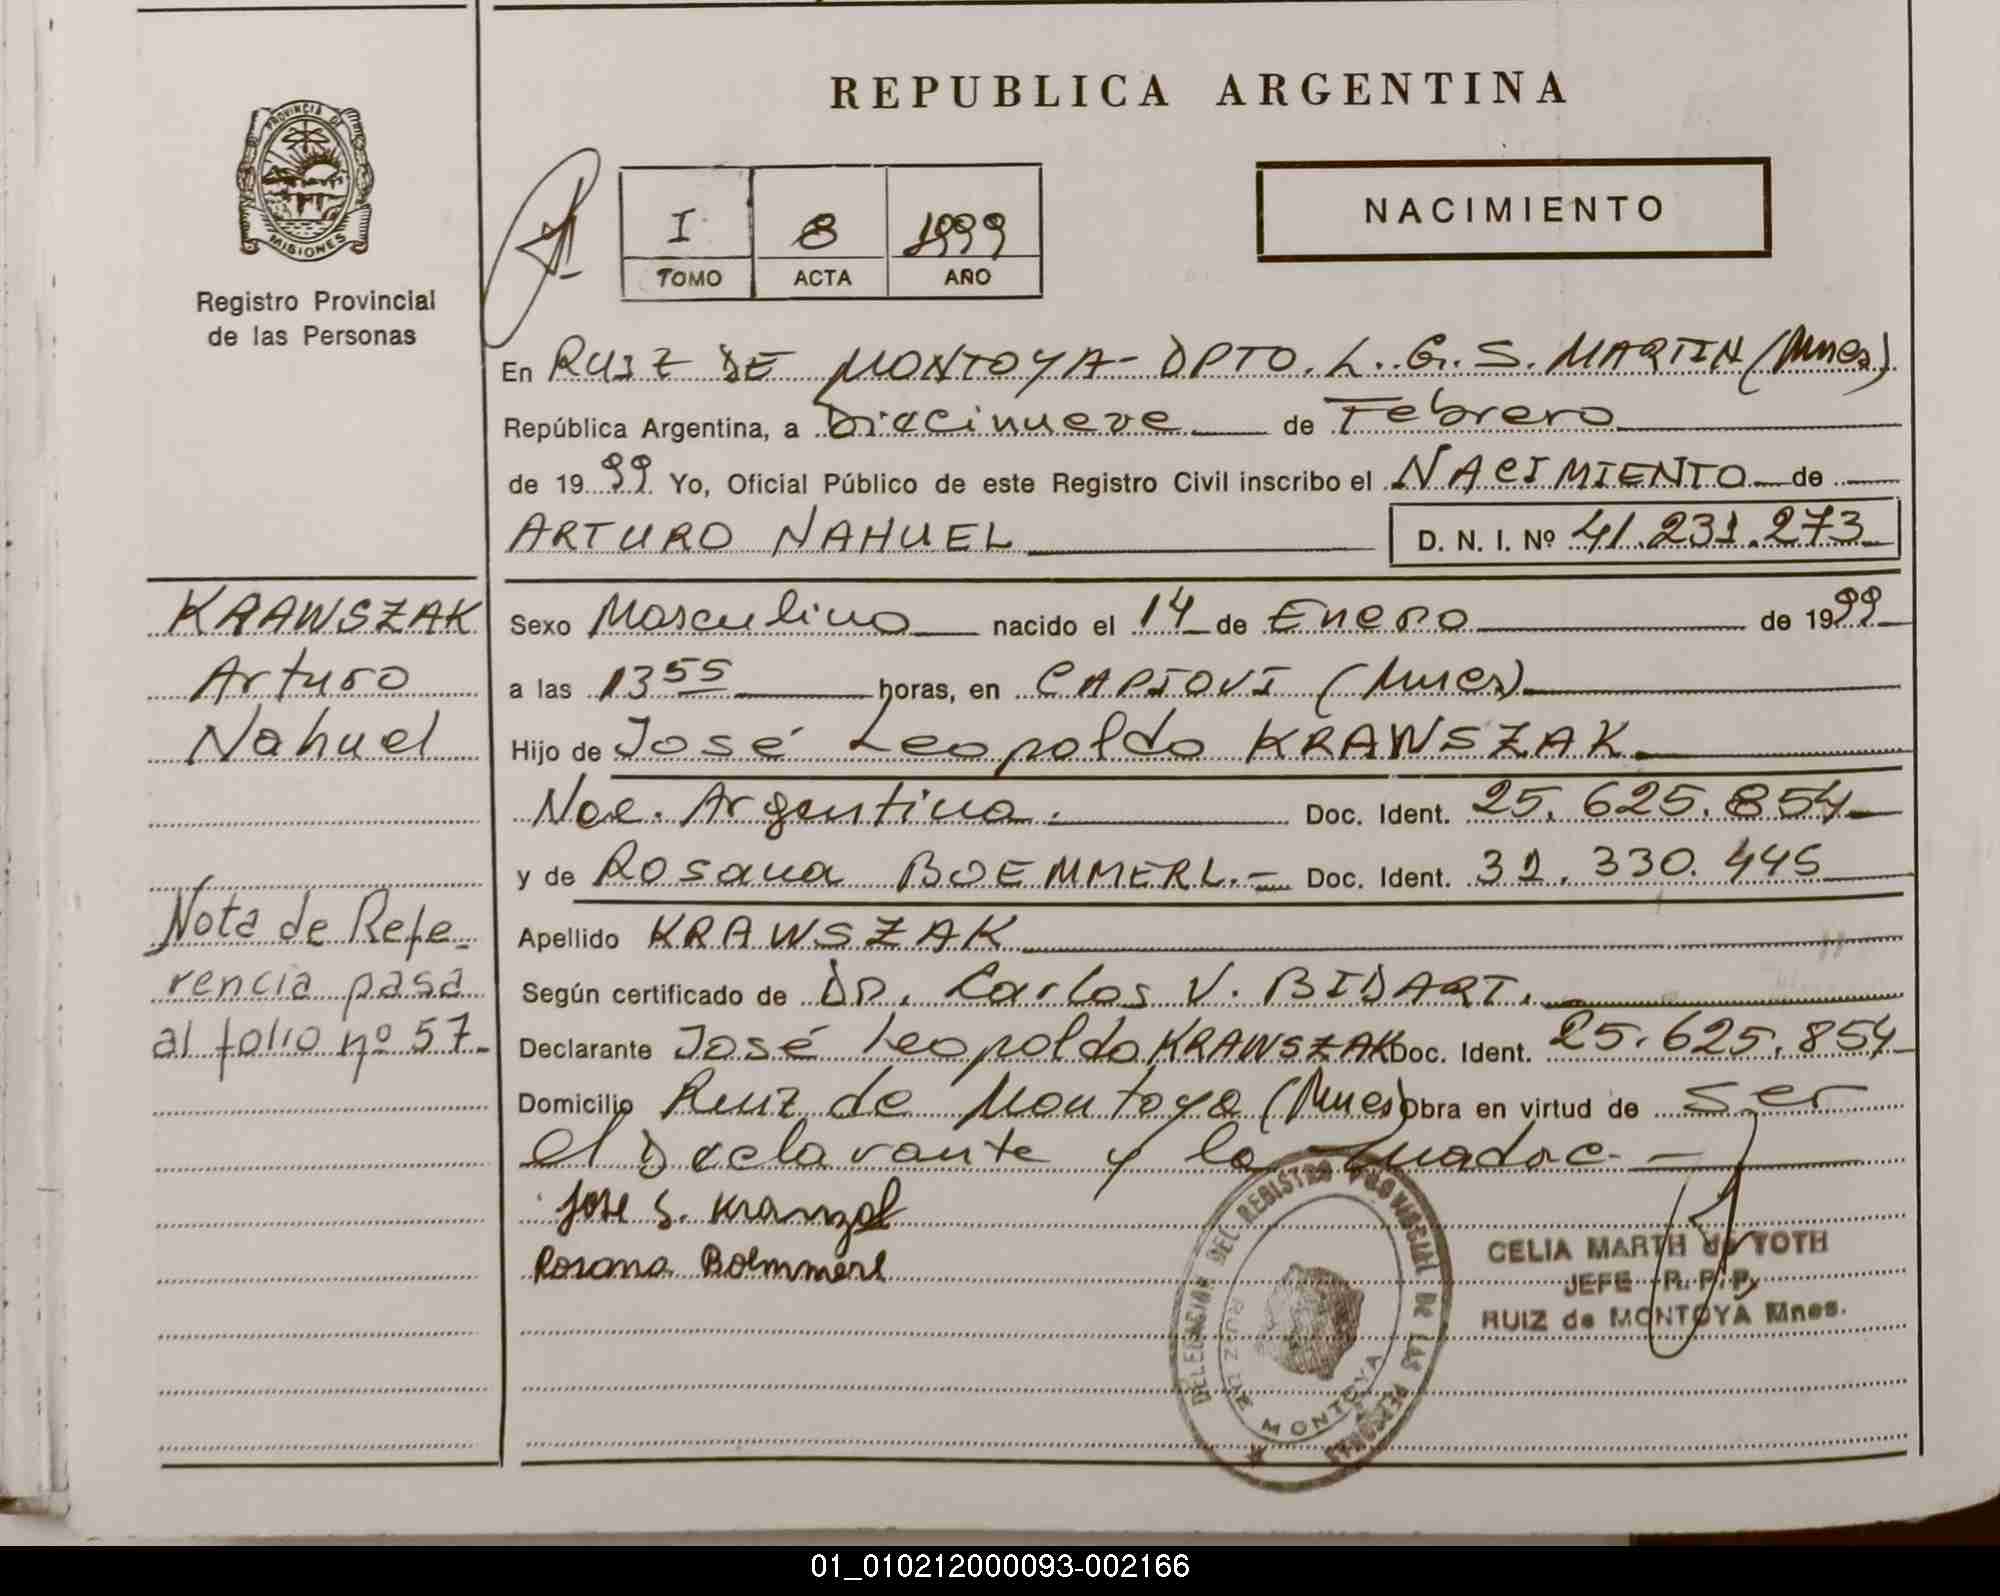 REPUBLICA ARGENTINA
PROVINCIA DE MISIONES
Registro Provincial
de las Personas
I 8 1999
TOMO ACTA AÑO
NACIMIENTO
En RUIZ DE MONTOYA- DPTO. L. G. S. MARTIN (Mnes)
República Argentina, a Diecinueve de Febrero
de 1999 Yo, Oficial Público de este Registro Civil inscribo el NACIMIENTO de
ARTURO NAHUEL D. N. I. Nº 41.231.273
KRAWSZAK
Arturo
Nahuel
Nota de Refe-
rencia pasa
al folio nº 57-
Sexo Masculino nacido el 14 de Enero de 1999
a las 13 55 horas, en CAPIOVI (Mnes)
Hijo de José Leopoldo KRAWSZAK
Nac. Argentina. Doc. Ident. 25.625.854
y de Rosana BOEMMERL.- Doc. Ident. 31.330.445
Apellido KRAWSZAK
Según certificado de Dr. Carlos V. BIDART.
Declarante José Leopoldo KRAWSZAK Doc. Ident. 25.625.854
Domicilio Ruiz de Montoya (Mnes) Obra en virtud de ser
el Declarante y la Madre.-
Rosana Boemmerl
DELEGACION DEL REGISTRO PROVINCIAL DE LAS PERSONAS
RUIZ DE MONTOYA
CELIA MARTH de TOTH
JEFE R. P. P.
RUIZ de MONTOYA Mnes.
01_010212000093-002166